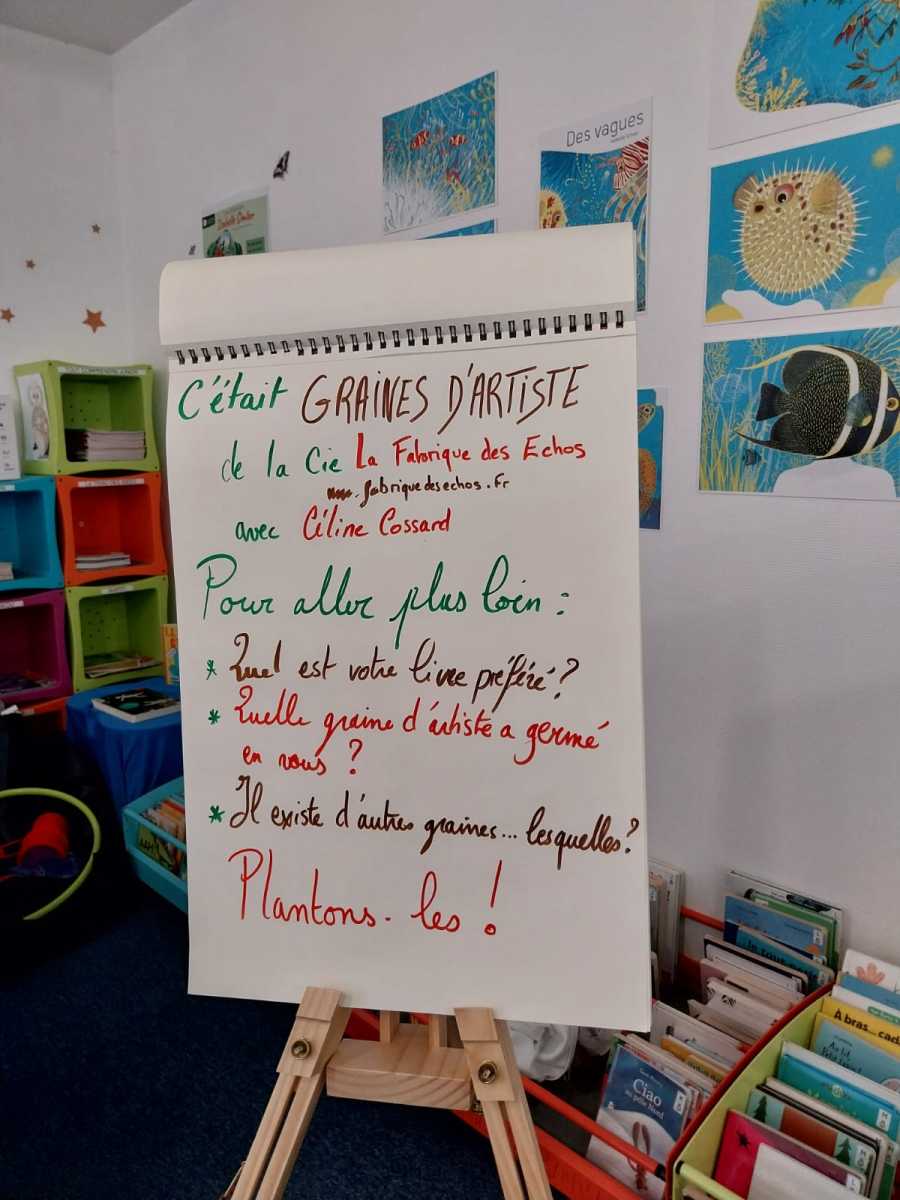 Des vagues
C'était GRAINES D'ARTISTE
de la Cie La Fabrique des Echos
www.fabriquedesechos.fr
avec Céline Cossard
Pour aller plus loin :
* Quel est votre livre préféré ?
* Quelle graine d'artiste a germé
en vous ?
* Il existe d'autres graines... lesquelles ?
Plantons-les !
À bras...
Ciao
au pôle Nord